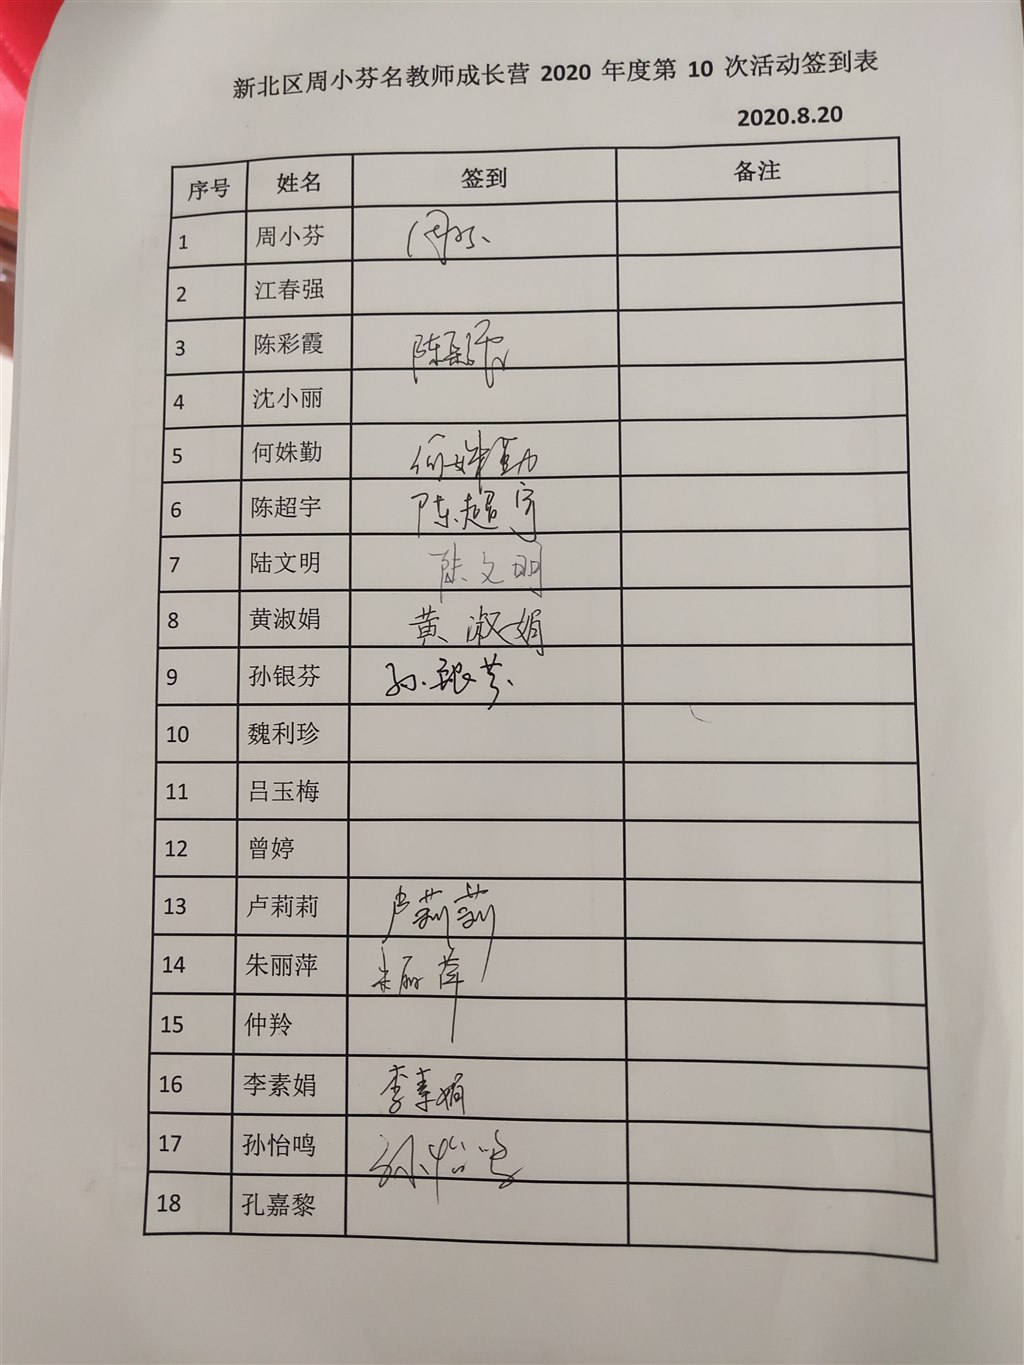 新北区周小芬名教师成长营 2020 年度第 10 次活动签到表
2020.8.20
序号 姓名 签到 备注
1 周小芬
2 江春强
3 陈彩霞 陈彩霞
4 沈小丽
5 何姝勤 何姝勤
6 陈超宇 陈超宇
7 陆文明 陆文明
8 黄淑娟 黄淑娟
9 孙银芬 孙银芬
10 魏利珍
11 吕玉梅
12 曾婷
13 卢莉莉 卢莉莉
14 朱丽萍 朱丽萍
15 仲羚
16 李素娟 李素娟
17 孙怡鸣 孙怡鸣
18 孔嘉黎